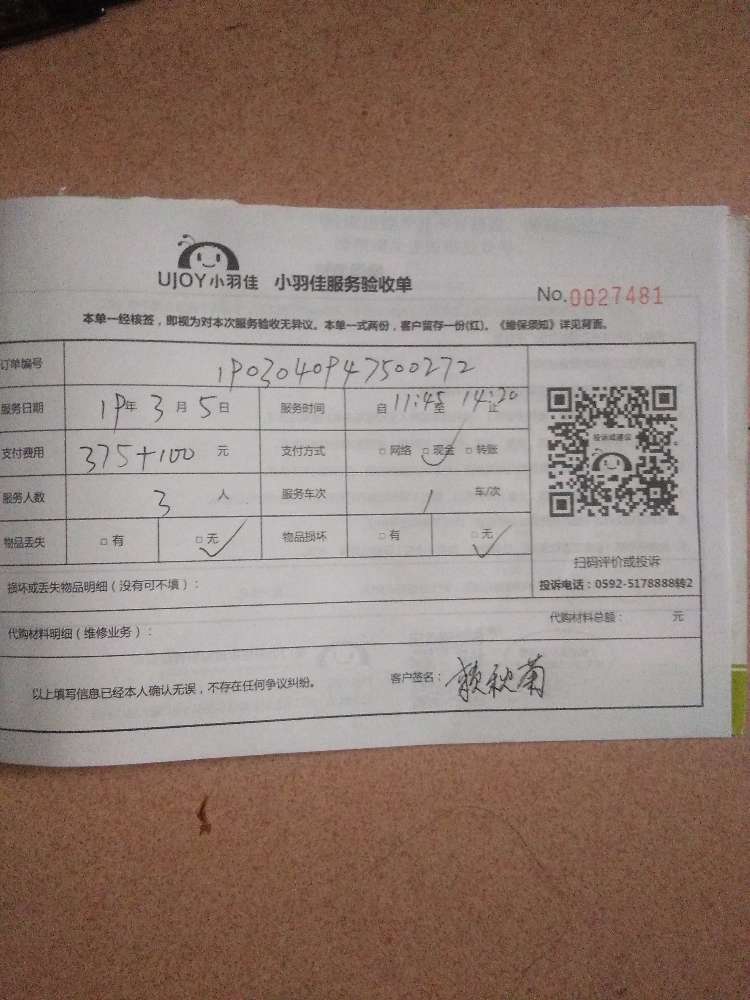 UJOY小羽佳 小羽佳服务验收单
No.0027481
本单一经核签，即视为对本次服务验收无异议。本单一式两份，客户留存一份(红)。《维保须知》详见背面。
订单编号 1903040947500272
服务日期 19年3月5日 服务时间 自11:45至14:20止
支付费用 375+100 元 支付方式 □网络 □现金 □转账
服务人数 3 人 服务车次 1 车/次
物品丢失 □有 □无 物品损坏 □有 □无
投诉或建议
扫码评价或投诉
投诉电话：0592-5178888转2
损坏或丢失物品明细（没有可不填）：
代购材料明细（维修业务）： 代购材料总额： 元
以上填写信息已经本人确认无误，不存在任何争议纠纷。 客户签名：赖秋菊